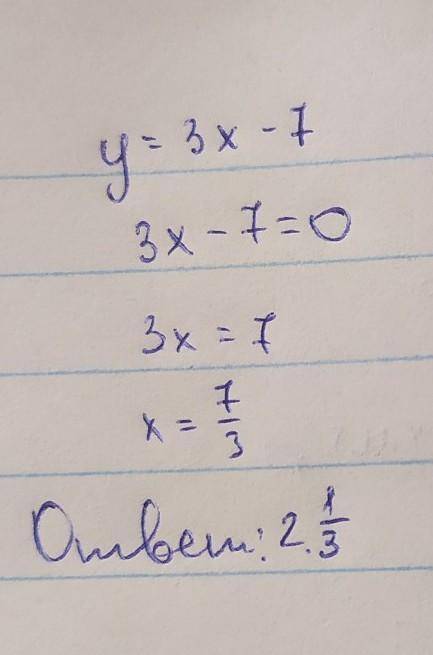 y = 3x - 7
3x - 7 = 0
3x = 7
x = 7/3
Ответ: 2. 1/3